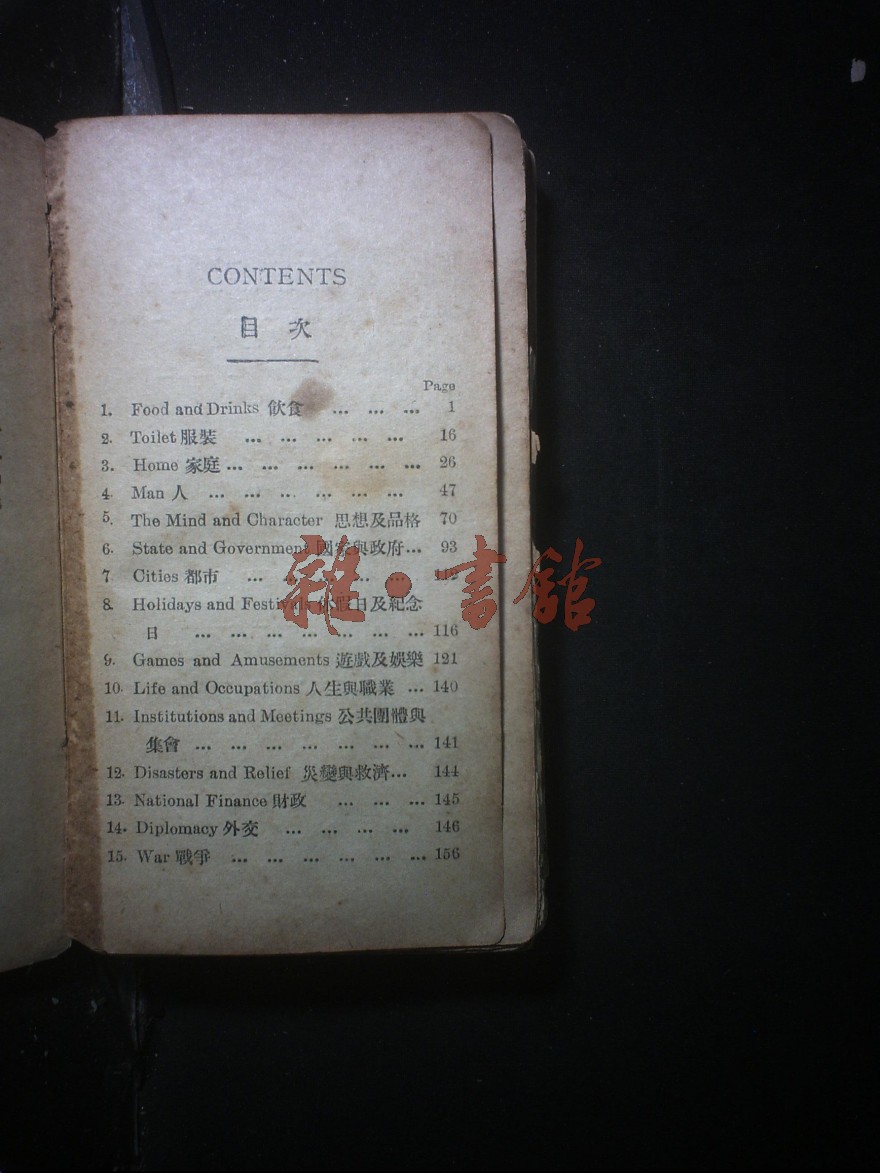 CONTENTS
目次
Page
1. Food and Drinks 飲食 ... ... ... 1
2. Toilet 服裝 ... ... ... ... ... 16
3. Home 家庭 ... ... ... ... ... ... 26
4. Man 人 ... ... ... ... ... ... 47
5. The Mind and Character 思想及品格 70
6. State and Government 國家與政府 ... 93
7. Cities 都市 ... ... ... ... ...
8. Holidays and Festivals 休假日及紀念
日 ... ... ... ... ... ... ... 116
9. Games and Amusements 遊戲及娛樂 121
10. Life and Occupations 人生與職業 ... 140
11. Institutions and Meetings 公共團體與
集會 ... ... ... ... ... ... ... 141
12. Disasters and Relief 災變與救濟 ... 144
13. National Finance 財政 ... ... ... 145
14. Diplomacy 外交 ... ... ... ... 146
15. War 戰爭 ... ... ... ... ... ... 156
雜·書館